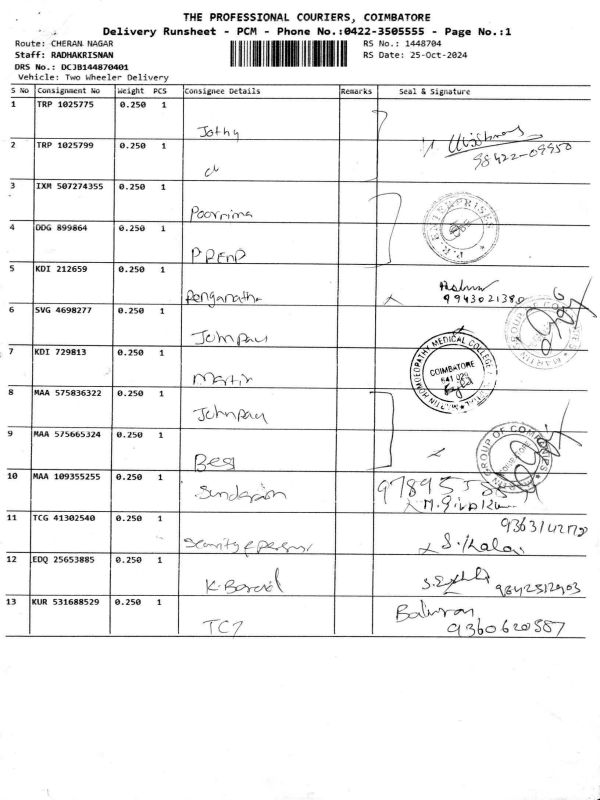 THE PROFESSIONAL COURIERS, COIMBATORE
Delivery Runsheet - PCM - Phone No.:0422-3505555 - Page No.:1
Route: CHERAN NAGAR RS No.: 1448704
Staff: RADHAKRISNAN RS Date: 25-Oct-2024
DRS No.: DCJB144870401
Vehicle: Two Wheeler Delivery
S No Consignment No Weight PCS Consignee Details Remarks Seal & Signature
1 TRP 1025775 0.250 1
Jothy
2 TRP 1025799 0.250 1
98422-09950
3 IXM 507274355 0.250 1
Poornima
P.R. ENTERPRISES
4 DDG 899864 0.250 1
5 KDI 212659 0.250 1
9943021380
6 SVG 4698277 0.250 1
Johnpaul
MARTIN GROUP OF COMPANIES
7 KDI 729813 0.250 1
Martin
MARTIN HOMOEOPATHY MEDICAL COLLEGE
COIMBATORE
641 029
8 MAA 575836322 0.250 1
Johnpaul
9 MAA 575665324 0.250 1
Best
MARTIN GROUP OF COMPANIES
10 MAA 109355255 0.250 1
11 TCG 41302540 0.250 1
S. Kalai
12 EDQ 25653885 0.250 1
13 KUR 531688529 0.250 1
9360620557